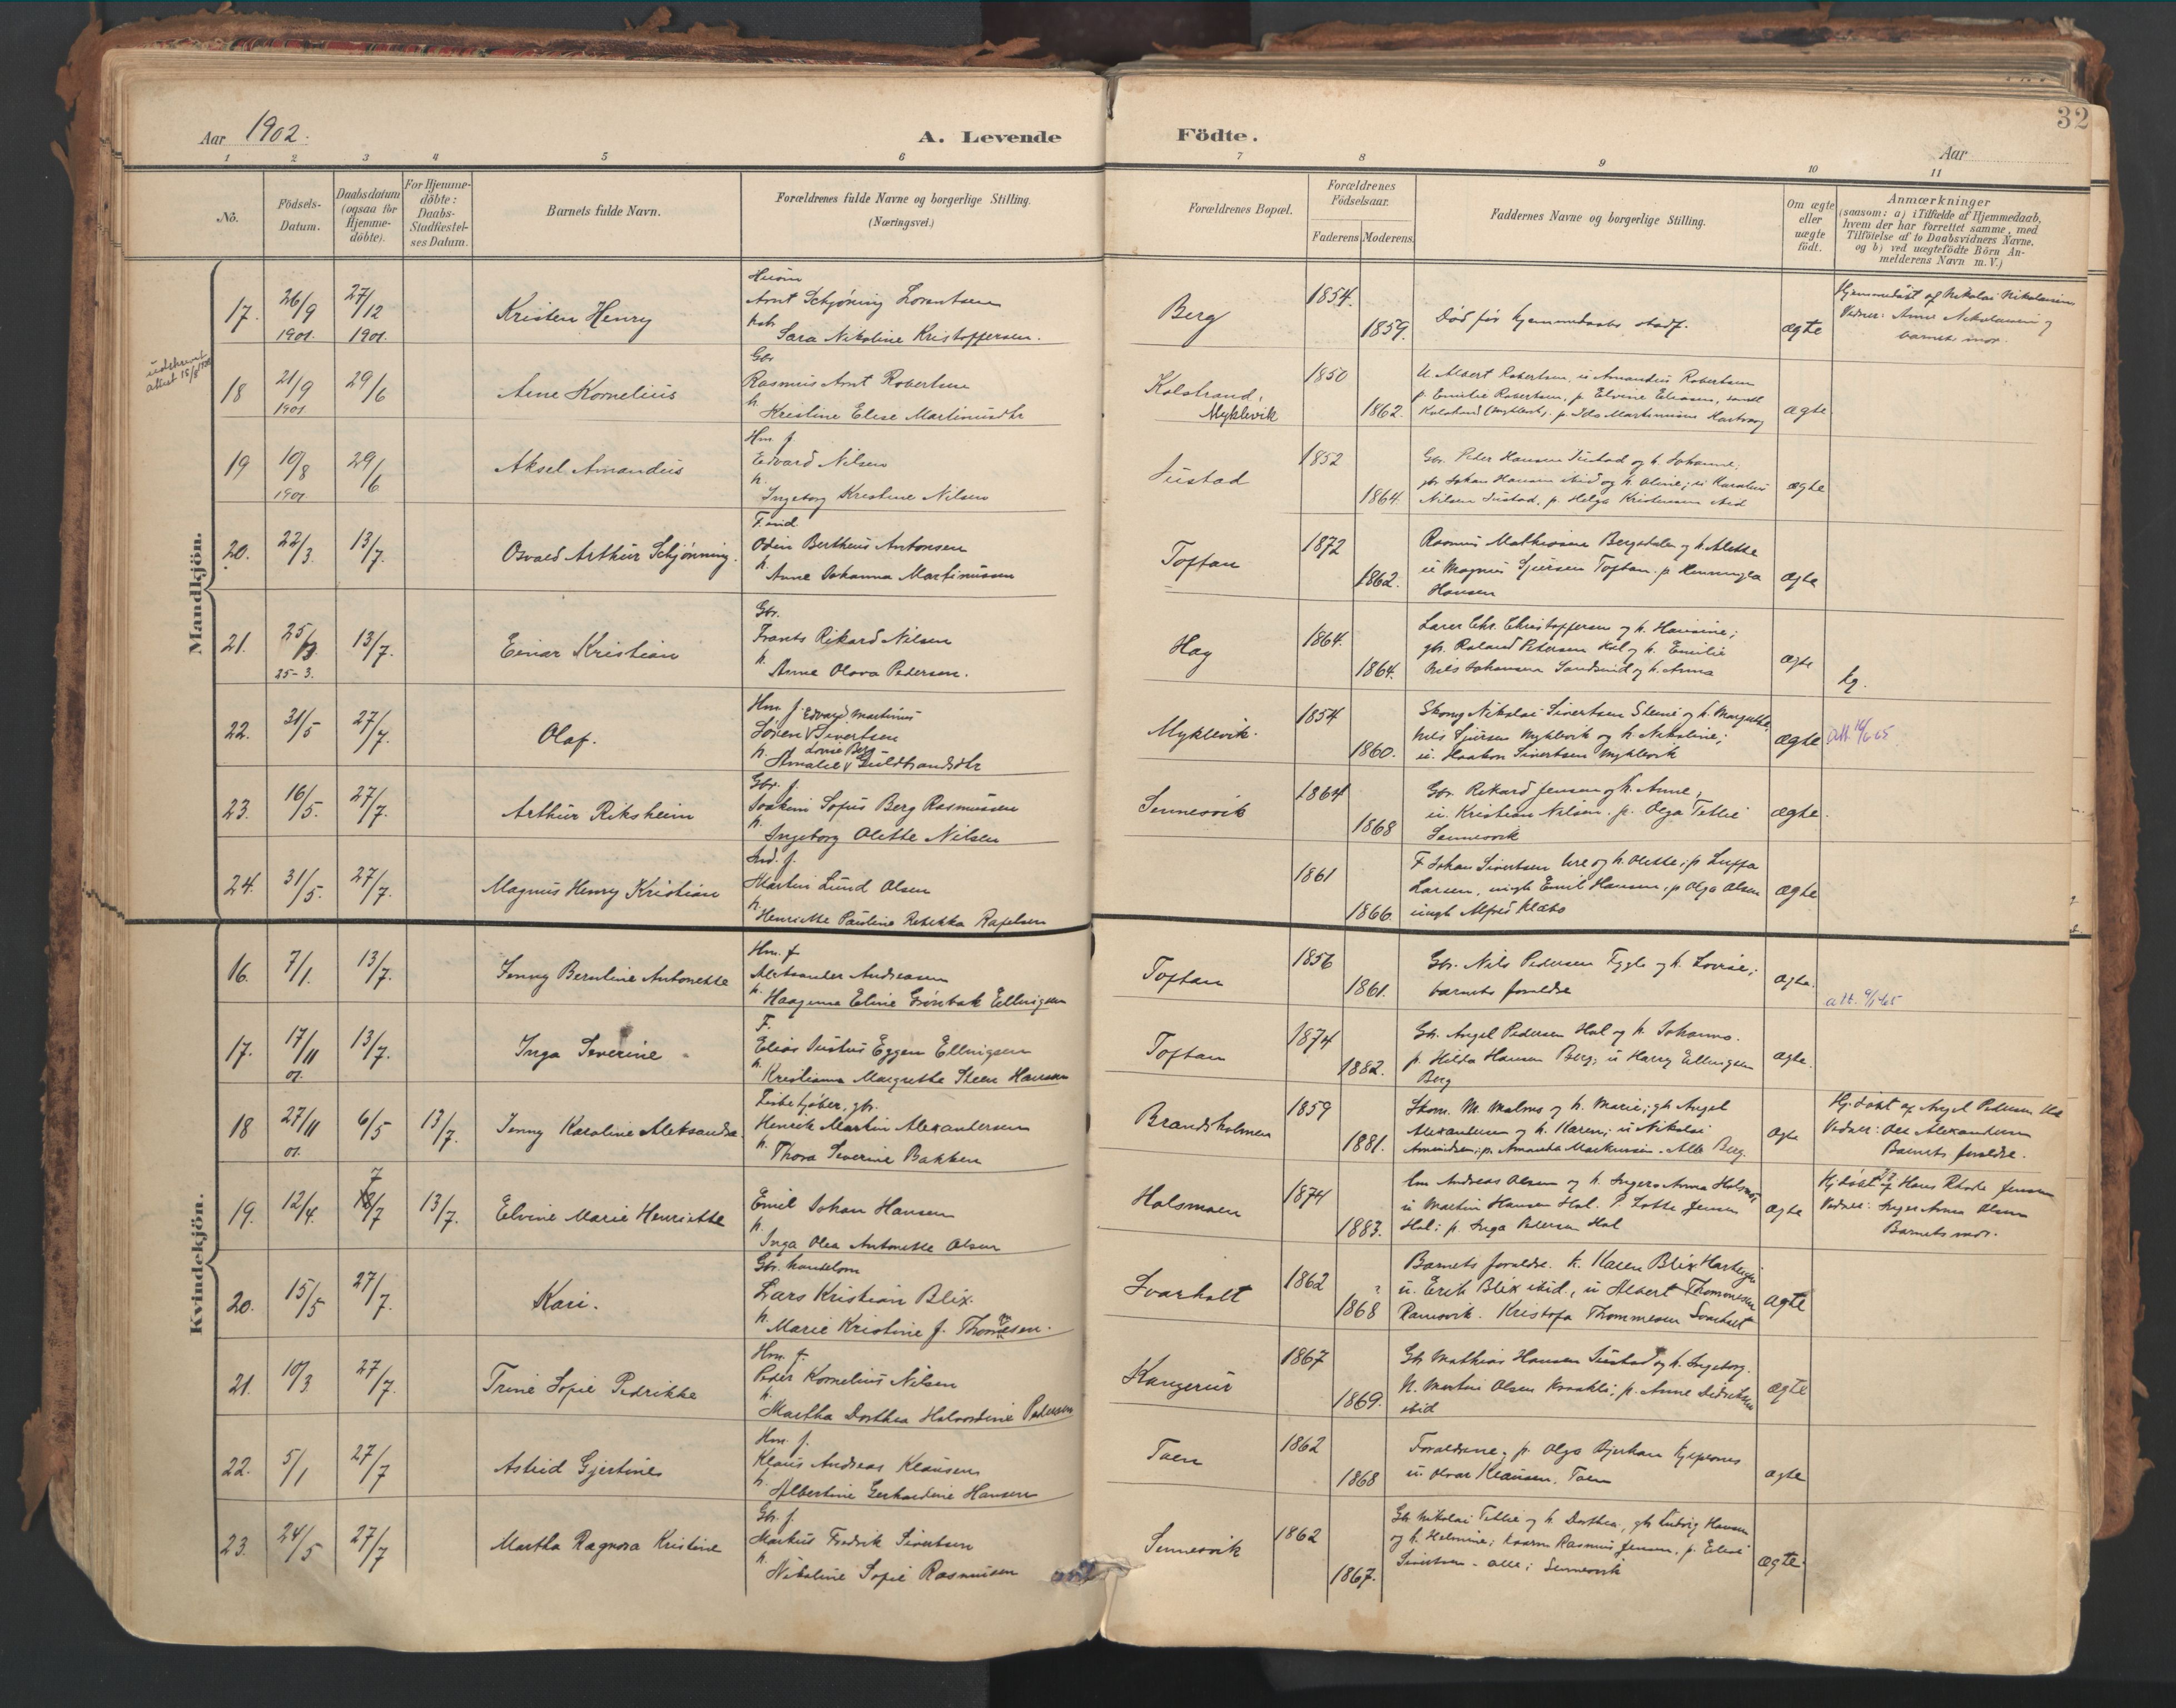 32
Aar 1902.
A. Levende Födte.
Aar
1 2 3 4 5 6 7 8 9 10 11
No.
Födsels-
Datum.
Daabsdatum
(ogsaa för
Hjemme-
döbte).
For Hjemme-
döbte:
Daabs-
Stadfæstel-
ses Datum.
Barnets fulde Navn.
Forældrenes fulde Navne og borgerlige Stilling.
(Næringsvei.)
Forældrenes Bopæl.
Forældrenes
Födselsaar.
Faderens Moderens
Faddernes Navne og borgerlige Stilling.
Om ægte
eller
uægte
födt.
Anmærkninger
(saasom: a) i Tilfælde af Hjemmedaab,
hvem der har forrettet samme, med
Tilföielse af to Daabsvidners Navne,
og b) ved uægtefödte Börn An-
melderens Navn m. V.)
Mandkjön.
17. 26/9 1901. 27/12 1901.
Kristen Henry
Arnt Schjöning Lorentsen
Sara Nikoline Kristoffersen.
Berg
1854.
1859.
Död för hjemmedaabs stadf.
ægte
Hjemmedöbt af Nikolai Nikolaisen
Vidner: Anne Nikolaisen og
barnets mor.
18 21/9 1901 29/6
Arne Kornelius
Gbr
Rasmus Arnt Robertsen
h. Kristine Elise Martinusdtr
Kolstrand,
Myklevik
1850
1862.
U. Albert Robertsen, u Amandus Robertsen
p. Emilie Robertsen, p. Elvine Eliasen, samtl
ægte
19 10/8 1901 29/6
Aksel Amandus
Hm. f.
Edvard Nilsen
h.
Ingeborg Kristine Nilsen
Justad
1852
1864.
Gbr. Peder Hansen Justad og h. Johanne;
gbr Johan Hansen ibid og h. Oline; u Karolius
Nilsen Justad, p. Helga Kristensen ibid
ægte
20. 22/3. 13/7.
Osvald Arthur Schjönning.
F. ind.
Odin Bertheus Antonsen
h. Anne Johanna Martinussen
Toftan
1872
1862.
Rasmus Mathisen Bergsdalen og h. Alette
u Magnus Sjursen Toftan. p. Henningea
Hansen
ægte
21. 25/3 25-3. 13/7.
Einar Kristian
Gbr.
Frants Rikard Nilsen
h.
Anne Olava Pedersen.
Hag
1864.
1864.
Larer Chr. Christoffersen og h. Hansine;
gbr. Roland Petersen Hol og h. Emilie
Nils Johansen Sandsund og h. Anna
ægte
kg.
22. 31/5 27/7.
Olaf.
Hm f. Edvard Martinus
Sören Sivertsen
Lovise Berg
h. Amalie Guldbrandsdtr
Myklevik.
1854
1860.
Skomg Nikolai Sivertsen Steine og h. Margrethe,
Nils Sjursen Myklevik og h. Nikoline;
u. Haakon Sivertsen Myklevik
ægte
23. 16/5. 27/7.
Arthur Riksheim
Gbr. f.
Joakim Sofus Berg Rasmussen
h.
Ingeborg Olette Nilsen
Sennesvik
1864
1868
Gbr. Rikard Jensen og h. Anne,
u. Kristian Nilsen. p. Olga Tetlie
Sennesvik
ægte
24. 31/5. 27/7.
Magnus Henry Kristian
Ind. f.
Martin Lund Olsen
h.
Henriette Pauline Rebekka Rafelsen
1861
1866.
F Johan Sivertsen Ure og h. Olette; p Luffa
Larsen, ungk Emil Hansen, p Olga Olsen
ungk Alfred Klæbo
ægte
Kvindekjön.
16. 7/1. 13/7.
Jenny Berntine Antonette
Hm. f
Aleksander Andreasen
h. Haagene Eline Grönbæk Ellingsen
Toftan
1856
1861.
Gbr. Nils Pedersen Eggle og h. Lovise;
barnets foreldre
ægte.
17. 17/11 01. 13/7.
Inga Severine
F.
Elias Justus Eggen Ellingsen
h.
Kristianna Margrethe Steen Hansen
Toftan
1874
1882.
Gbr. Angel Pedersen Hol og h. Johanna.
p. Hilda Hansen Berg; u Harry Ellingsen
Berg
ægte.
18 27/11 01. 6/5 13/7.
Jenny Karoline Aleksandra.
Fiskekjöber, gbr.
Henrik Martin Alexandersen
h. Thora Severine Bakken
Brandsholmen
1859
1881.
Skom. M. Malms og h. Marie; gbr Angel
Alexandersen og h. Karen; u Nikolai
Amundsen; p. Amanda Markussen. Alle Berg.
ægte
Hj. döbt af Angel Pedersen Hol
Vidner: Ole Alexandersen
Barnets foreldre.
19. 12/4. 13/7.
Elvine Marie Henriette
Emil Johan Hansen
h.
Inga Olea Antonette Olsen
Holsmoen
1874
1883.
Andreas Olsen og h. Inger Anna Holsmo
u Martin Hansen Hol. P. Lotte Jensen
Hol; p Inga Petersen Hol
ægte
Hj. döbt af Hans Rhode Jensen
Vidner: Inger Anna Olsen
Barnets mor.
20. 15/5 27/7.
Kari.
Gbr. handelsm
Lars Kristian Blix.
h.
Marie Kristine f. Thomesen.
Svarholt
1862
1868
Barnets foreldre. h. Karen Blix
u. Erik Blix ibid., u Albert Thommesen
Ramsvik. Kristofa Thommesen Svarholt
ægte
21. 10/3 27/7.
Trine Sofie Pedrikke
Hm. f.
Peder Kornelius Nilsen
h.
Martha Dorthea Halvordine Pedersen
Kangerur
1867
1869.
Gbr Mathias Hansen Justad og h. Ingeborg.
N. Martin Olsen Kraakli; p. Anne Didriksen
ibid
ægte
22. 5/1 27/7
Astrid Gjertine
Hm. f.
Klaus Andreas Klausen
h. Albertine Gerhardine Hansen
Taen
1862
1868
Foreldrene; p. Olga Bjerkan
u. Olvar Klausen. Taen
ægte
23. 24/5 27/7
Martha Ragnora Kristine
Gbr. f.
Markus Fredrik Sivertsen
h.
Nikoline Sofie Rasmussen
Sennesvik
1862
1867.
Gbr Nikolai Tetlie og h. Dorthea, gbr Ludvig Hansen
og h. Helmine; Rasmus Jensen, p.
Sivertsen - alle i Sennesvik
ægte